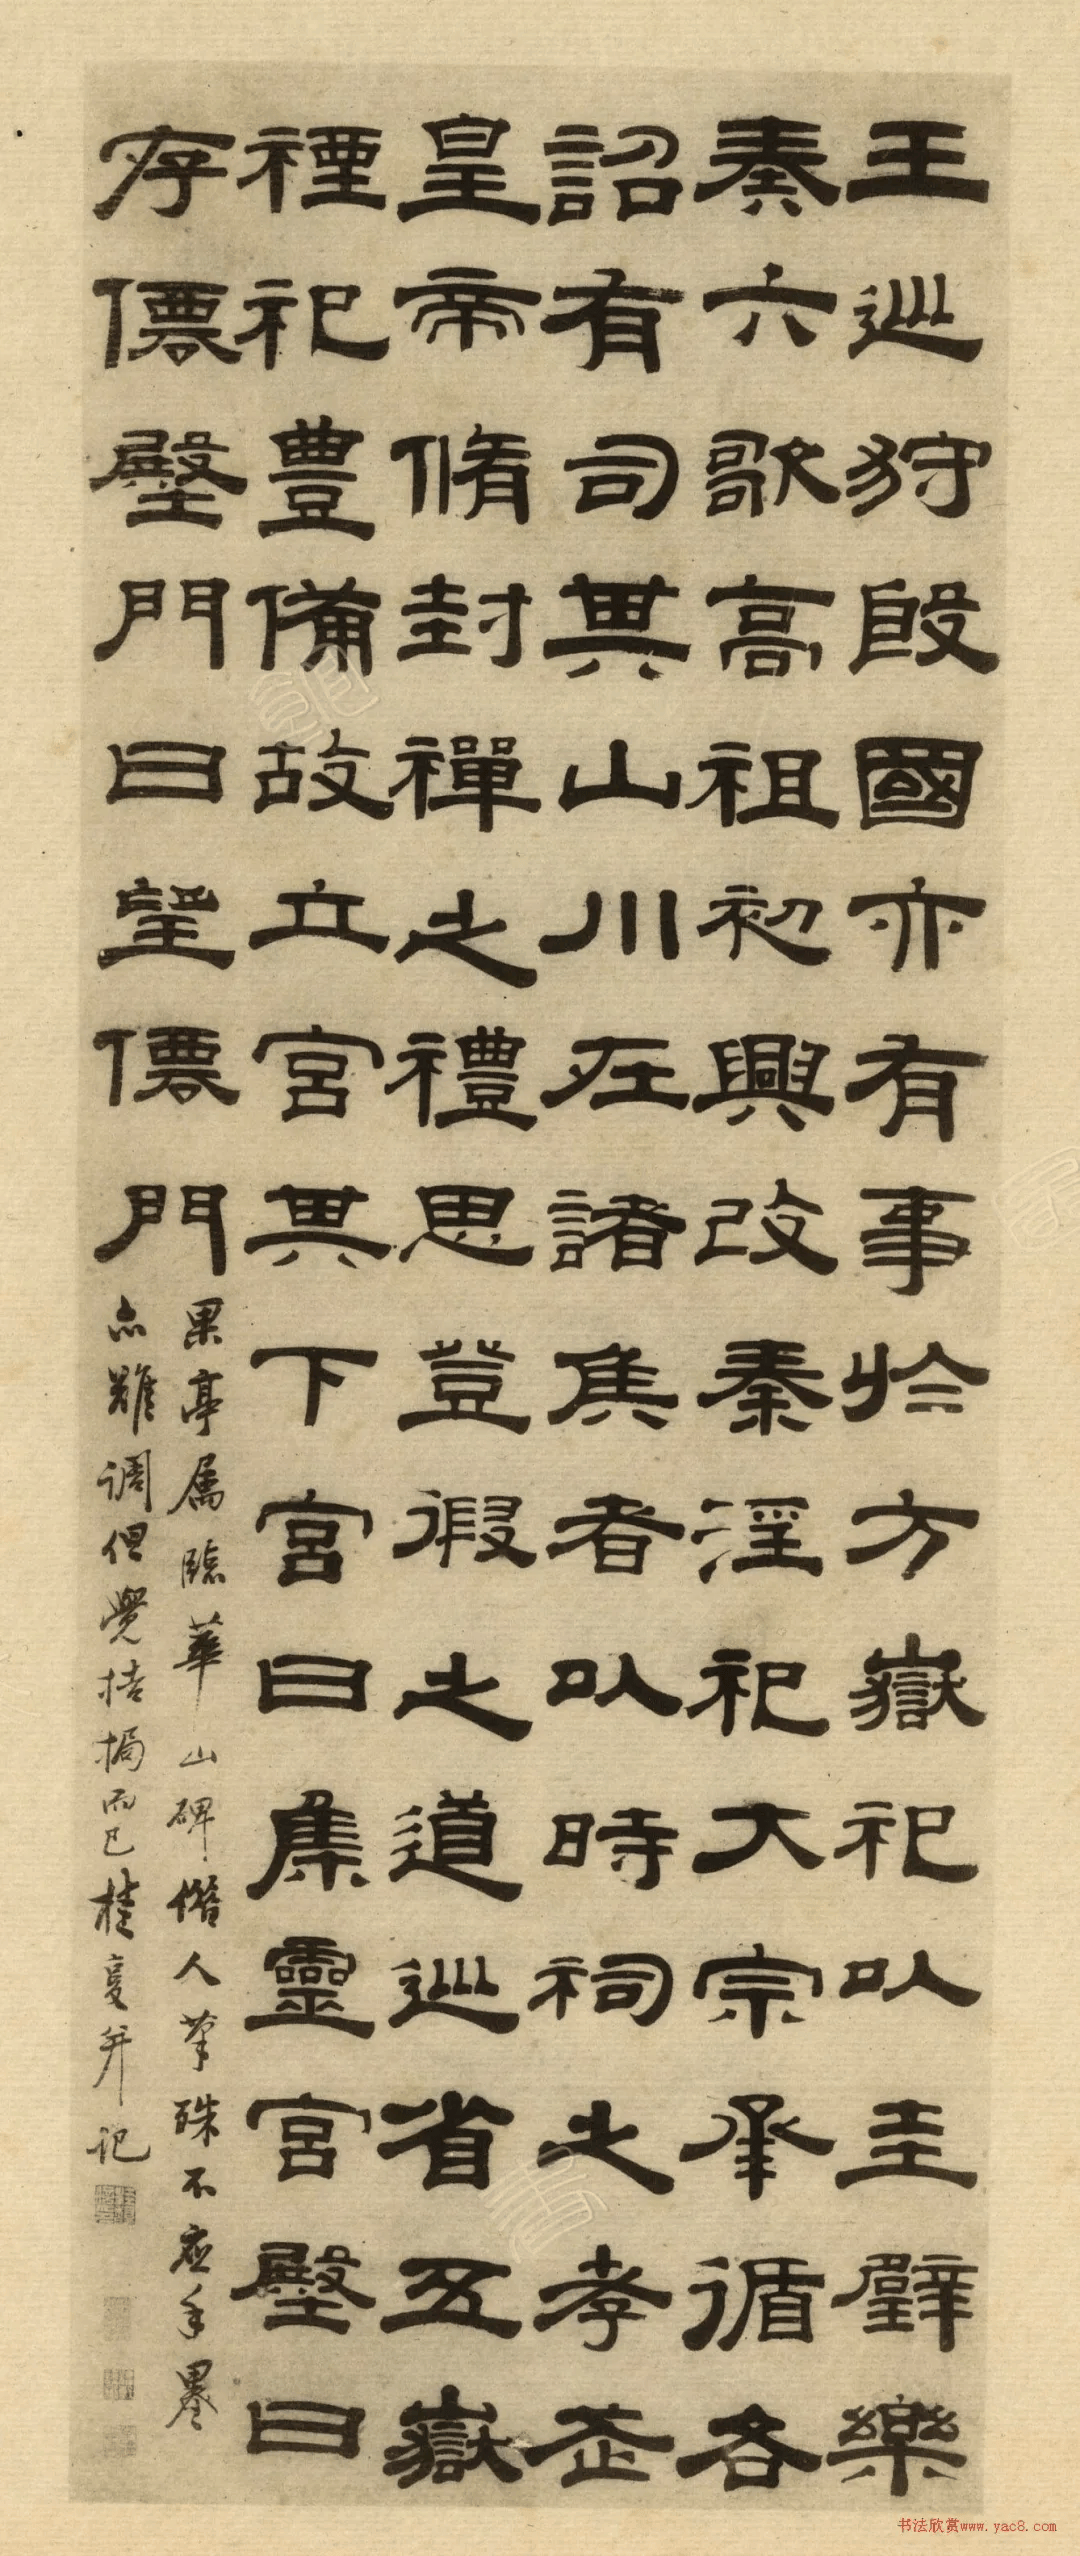 王巡狩殷國亦有事於方嶽祀以圭璧樂
奏六歌高祖初興改秦淫祀大宗承循各
詔有司其山川在諸侯者以時祠之孝武
皇帝脩封禪之禮思登徦之道巡省五嶽
禋祀豊備故立宮其下宮曰集靈宮殿曰
存僊殿門曰望僊門
果亭属臨華山碑借人筆殊不应手墨
亦難调但覺拮据而已桂复并记
书法欣赏www.yac8.com